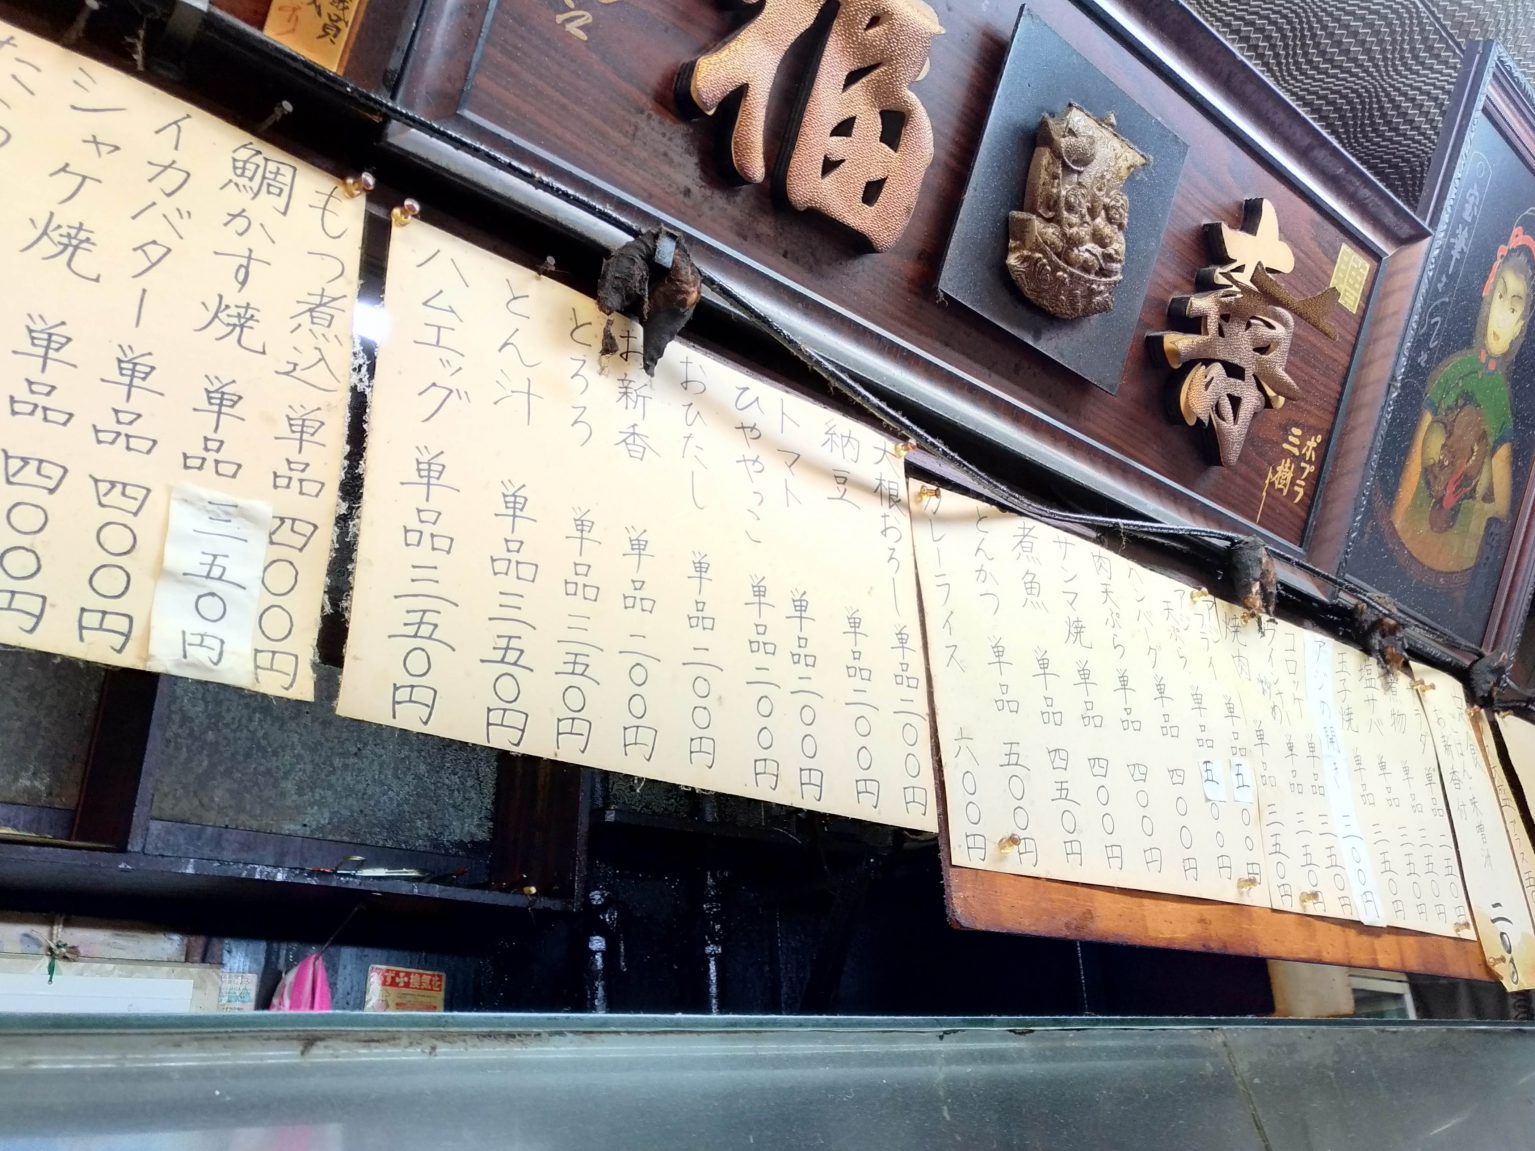 福
寿
ポプラ
三樹
カレーライス 六〇〇円
とんかつ 単品 五〇〇円
煮魚 単品 五〇〇円
サンマ焼 単品 四五〇円
肉天ぷら 単品 四〇〇円
ハンバーグ 単品 四〇〇円
天ぷら 単品 四〇〇円
アジフライ 単品 五〇〇円
焼肉 単品 五〇〇円
コロッケ 単品 三五〇円
アジの開き 三五〇円
玉子焼 単品 三五〇円
塩サバ 単品 三五〇円
煮物 単品 三五〇円
ごはん 味噌汁
お新香付
大根おろし 単品 二〇〇円
納豆 単品 二〇〇円
トマト 単品 二〇〇円
ひややっこ 単品 二〇〇円
おひたし 単品 二〇〇円
お新香 単品 二〇〇円
とろろ 単品 三五〇円
とん汁 単品 三五〇円
ハムエッグ 単品 三五〇円
もつ煮込 単品 四〇〇円
鯛かす焼 単品 三五〇円
イカバター 単品 四〇〇円
シャケ焼 単品 四〇〇円
必ず換気を